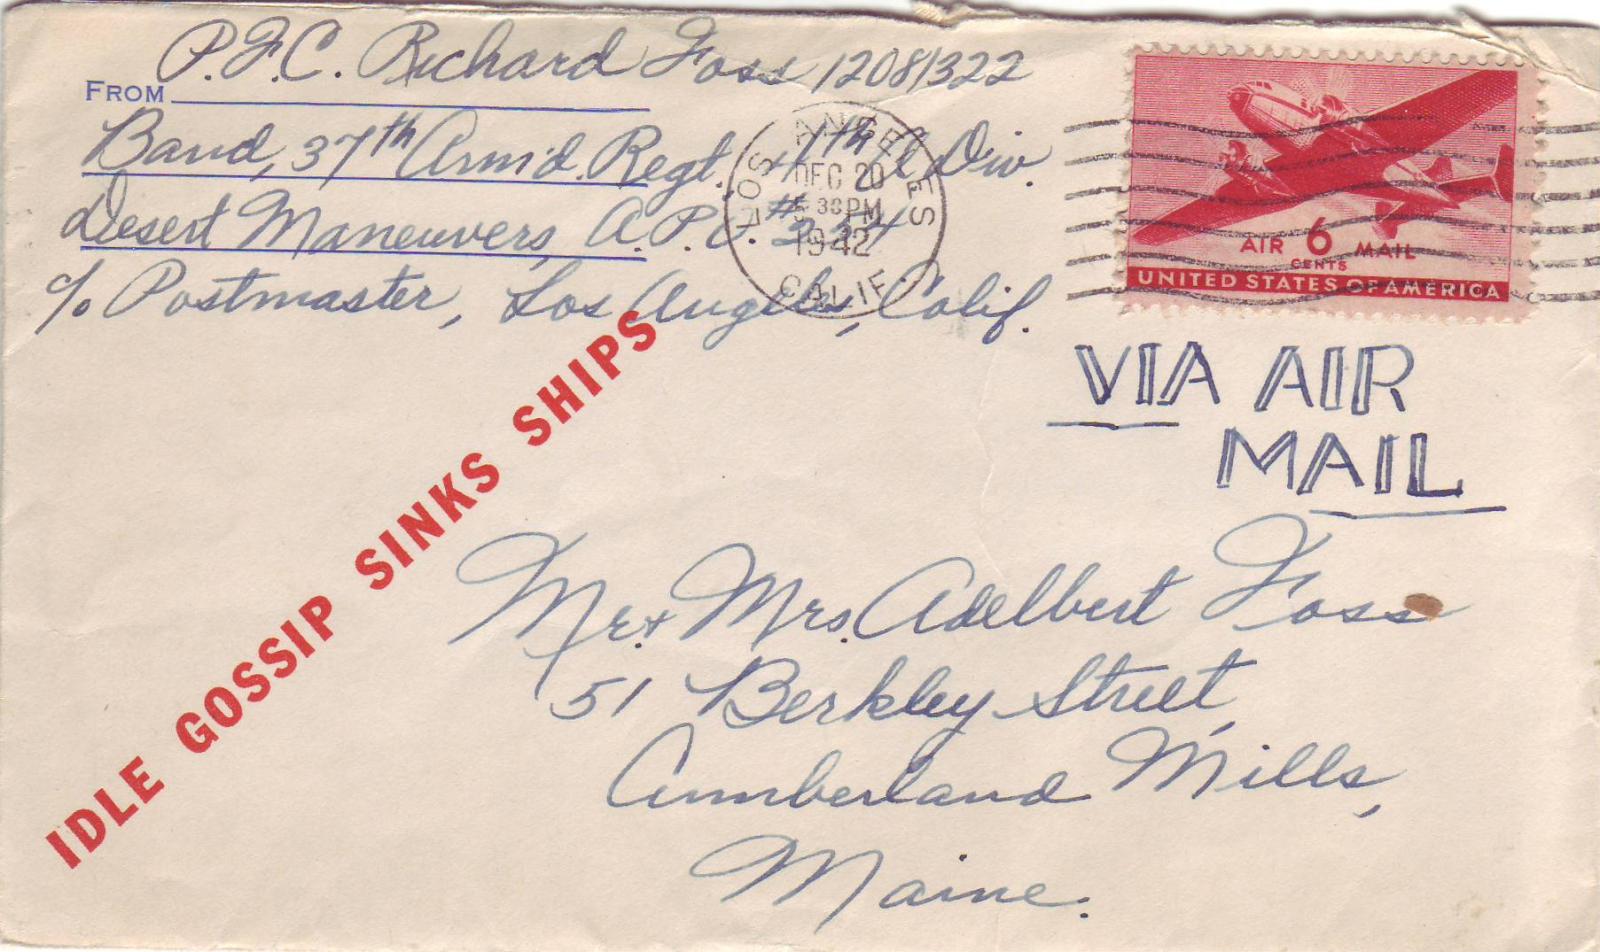 FROM P.F.C. Richard Foss 12081322
Band, 37th Arm'd. Regt. Div.
Desert Maneuvers, A.P.O.
c/o Postmaster, Los Angeles, Calif.
LOS ANGELES
DEC 20
30 PM
1942
CALIF.
AIR 6 MAIL
CENTS
UNITED STATES OF AMERICA
VIA AIR
MAIL
IDLE GOSSIP SINKS SHIPS
Mr. + Mrs. Adelbert Foss
51 Berkley Street,
Cumberland Mills,
Maine.